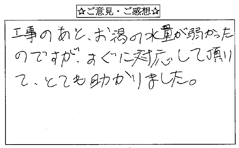 ☆ご意見・ご感想☆
工事のあと、お湯の水量が弱かった
のですが、すぐに対応して頂け
て、とても助かりました。